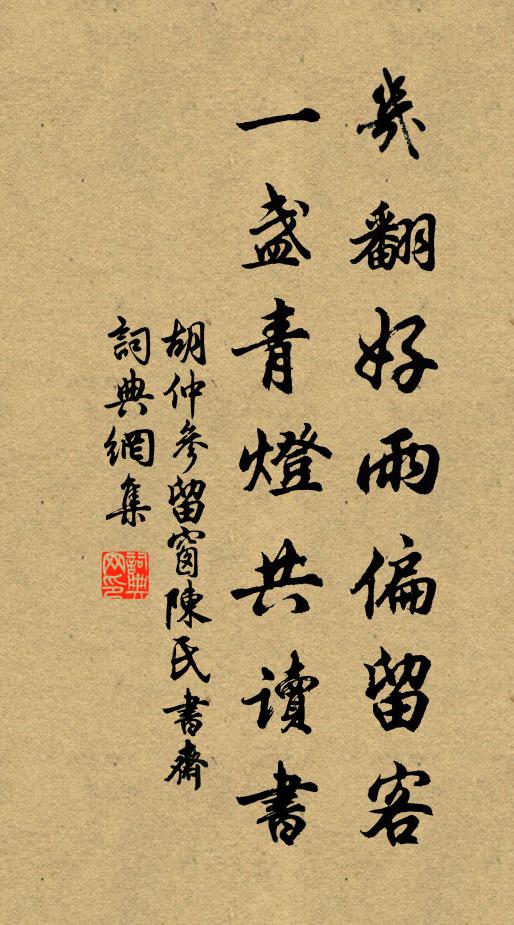 幾翻好雨偏留客
一盞青燈共讀書
胡仲參留窗陳氏書齋
詞典網集
詞典
网印